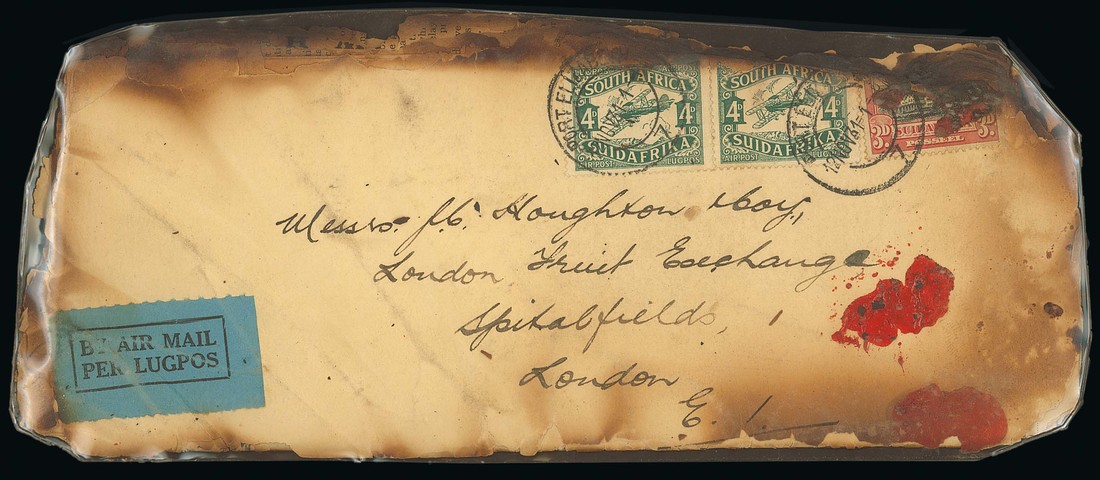 SOUTH AFRICA
4D 4D
SUIDAFRIKA
AIR POST LUGPOS
SOUTH AFRICA
4D 4D
SUIDAFRIKA
AIR POST LUGPOS
3D 3D
PORT EL
Messrs. Houghton
London Fruit Exchange
Spitalfields,
London
E. 1.
BY AIR MAIL
PER LUGPOS